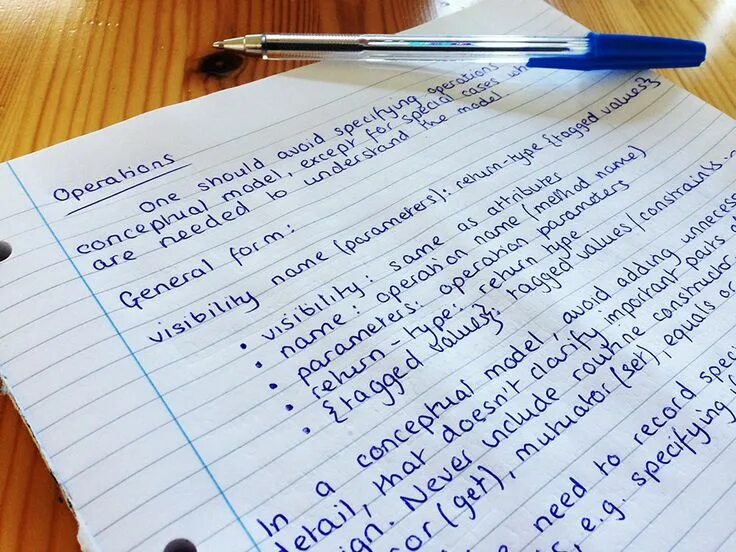 Operations
One should avoid specifying operations
conceptual model, except for special cases
are needed to understand the model
General form:
visibility name (parameters): return-type {tagged values}
• visibility: same as attributes
• name: operation name (method name)
• parameters: operation parameters
• return-type: return type
• {tagged values}: tagged values/constraints
In a conceptual model, avoid adding
detail, that doesn't clarify important parts
Never include routine constructor
(get), mutuator (set), equals or
need to record
e.g. specifying